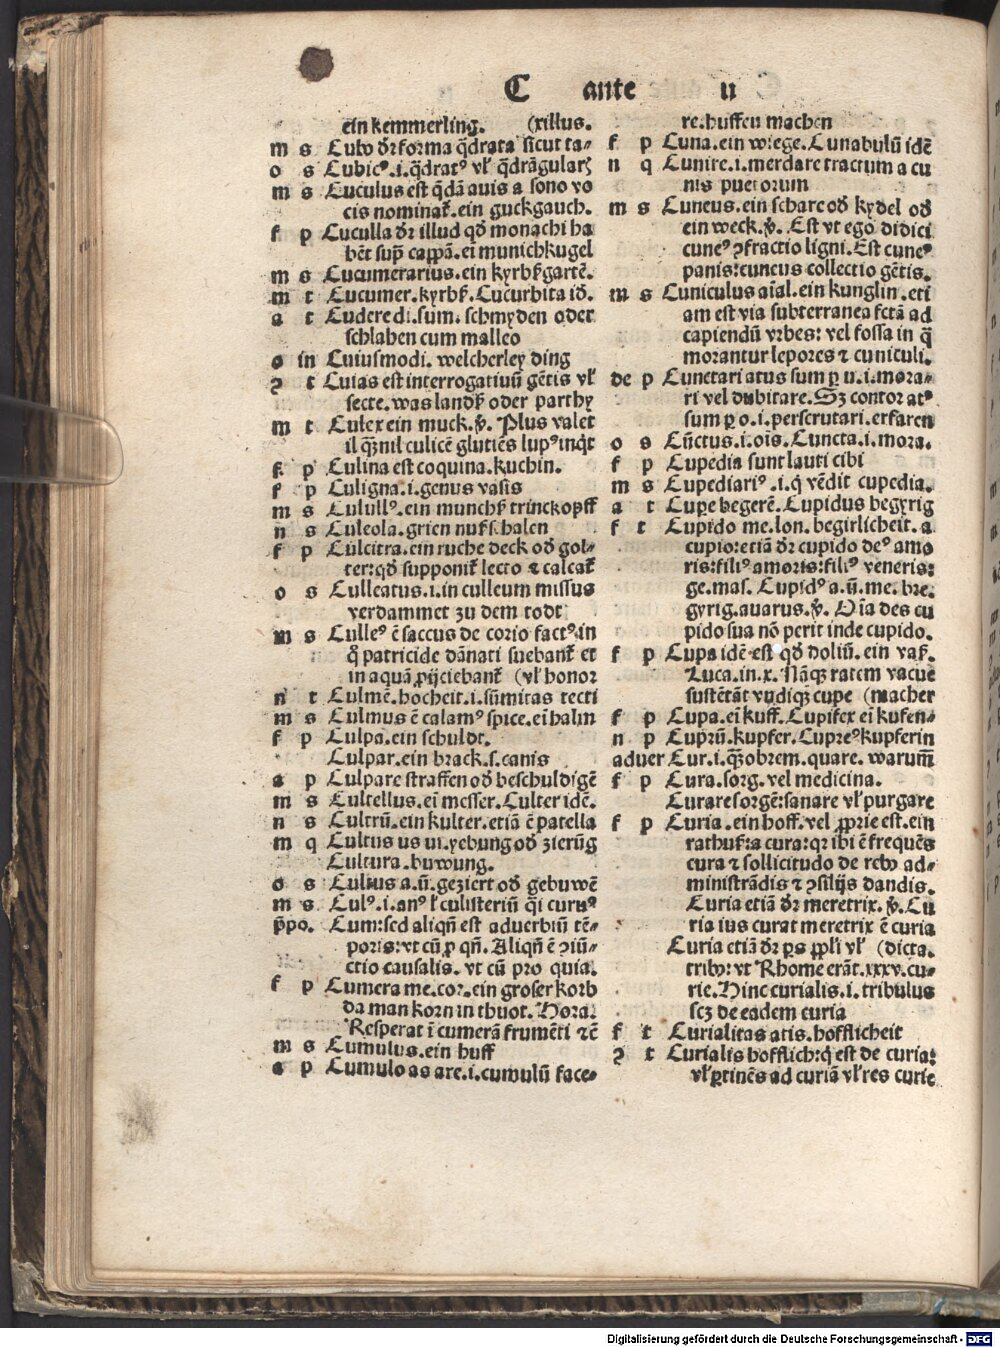 C ante u
ein kemmerling. (xillus.
m s Cubꝰ dr̄ forma q̄drata sicut ta⸗
o s Cubicꝰ.i.q̄dratꝰ vl̓ q̄drāgularꝭ
m s Cuculus est q̄dā auis a sono vo
cis nominat̓.ein guckgauch.
f p Cuculla dr̄ illud qd̓ monachi ha
bēt sup̄ cappā.ei munichkugel
m s Cucumerarius.ein kyrbs̓gartē.
m t Cucumer.kyrbs̓.Cucurbita id̓.
a t Cudere di.sum.schmyden oder
schlahen cum malleo
o in Cuiusmodi. welcherley ding
ꝯ t Cuias est interrogatiuū gētis vl̓
secte.was lands̓ oder parthy
m t Culex ein muck.v̓. Plus valet
il q̄nil culicē glutiēs lupꝰ inqt
f p Culina est coquina.kuchin.
f p Culigna.i.genus vasis
m s Cululꝰ.ein munchs̓ trinckopff
n s Culeola.grien nuss̓chalen
f p Culcitra.ein ruche deck od̓ gol⸗
ter:qd̓ supponit̓ lecto ⁊ calcat̓
o s Culleatus.i.in culleum missus
verdammet zu dem todt
m s Cullēꝰ ē saccus de corio factꝰ.in
q̊ patricide dānati suebant̓ et
in aquā ꝓijciebant̓ (vl̓ honor
n t Culmē.hocheit.i.sūmitas tecti
m s Culmus ē calamꝰ spice.eī halm
f p Culpa.ein schuldt.
Culpar.ein brack.s.canis
a p Culpare straffen od̓ beschuldigē
m s Cultellus.eī messer.Culter idē.
n s Cultrū.ein kulter.etiā ē patella
m q Cultus us ui.yebung od̓ zierūg
Cultura.buwung.
o s Cultus a.ū.geziert od̓ gebuwē
m s Culꝰ.i.anꝰ l̓ culisteriū q̄i curuꝰ
p̄po. Cum:sed aliqn̄ est aduerbiū tē⸗
poris:vt cū ꝓ qn̄. Aliqn̄ ē ꝯiū⸗
ctio causalis. vt cū pro quia.
f p Cumera me.cor.ein groser korb
da man korn in thuot. Horaꝰ
Resperat ī cumerā frumēti ⁊c̄
m s Cumulus.ein huff
a p Cumulo as are.i.cumulū face⸗
re.huffen machen
f p Cuna.ein wiege.Cunabulū idē
n q Cunire.i.merdare tractum a cu
nis puerorum
m s Cuneus.ein scharc od̓ kydel od̓
ein weck.v̓. Est vt ego didici
cuneꝰ ꝯfractio ligni.Est cuneꝰ
panis:cuneus collectio gētis.
m s Cuniculus aīal.ein kunglin.eti
am est via subterranea fctā ad
capiendū vrbes: vel fossa in q̄
morantur lepores ⁊ cuniculi.
de p Cunctari atus sum ꝑ u.i.mora⸗
ri vel dubitare.Sꝫ contor atꝰ
sum ꝑ o.i.perscrutari.erfaren
o s Cūctus.i.oīs.Cuncta.i.mora.
f p Cupedia sunt lauti cibi
m s Cupediariꝰ.i.q̓ vēdit cupedia.
a t Cupe begerē. Cupidus begyrig
f t Cupido me.lon. begirlicheit. a
cupio:etiā dr̄ cupido deꝰ amo
ris:filiꝰ amoris:filiꝰ veneris:
ge.mas. Cupidꝰ a.ū.me. bre.
gyrig.auarus.v̓. Oīa des cu
pido sua nō perit inde cupido.
f p Cupa idē est qd̓ doliū. ein vas̓.
Luca.in.x. Nāqꝫ ratem vacue
sustētāt vndiqꝫ cupe (macher
f p Cupa.eī kuff. Cupifex eī kufen⸗
n p Cuprū.kupfer.Cupreꝰkupferin
aduer Cur.i.q̄obrem.quare. warum̄
f p Cura.sorg.vel medicina.
Curare sorgē:sanare vl̓ purgare
f p Curia.ein hoff.vel ꝓprie est.ein
rathus̓:a cura:qꝛ ibi ē frequēs
cura ⁊ sollicitudo de rebꝰ ad⸗
ministrādis ⁊ ꝯsilijs dandis.
Curia etiā dr̄ meretrix.v̓.Cu
ria ius curat meretrix ē curia
Curia etiā dr̄ ꝑs ppl̓i vl̓ (dicta.
tribꝰ: vt Rhome erāt.xxxv.cu⸗
rie.Hinc curialis.i. tribulus
scꝫ de eadem curia
f t Curialitas atis.hofflicheit
ꝯ t Curialis hofflich:q̓ est de curia:
vl̓ ꝑtinēs ad curiā vl̓ res curie
Digitalisierung gefördert durch die Deutsche Forschungsgemeinschaft - DFG